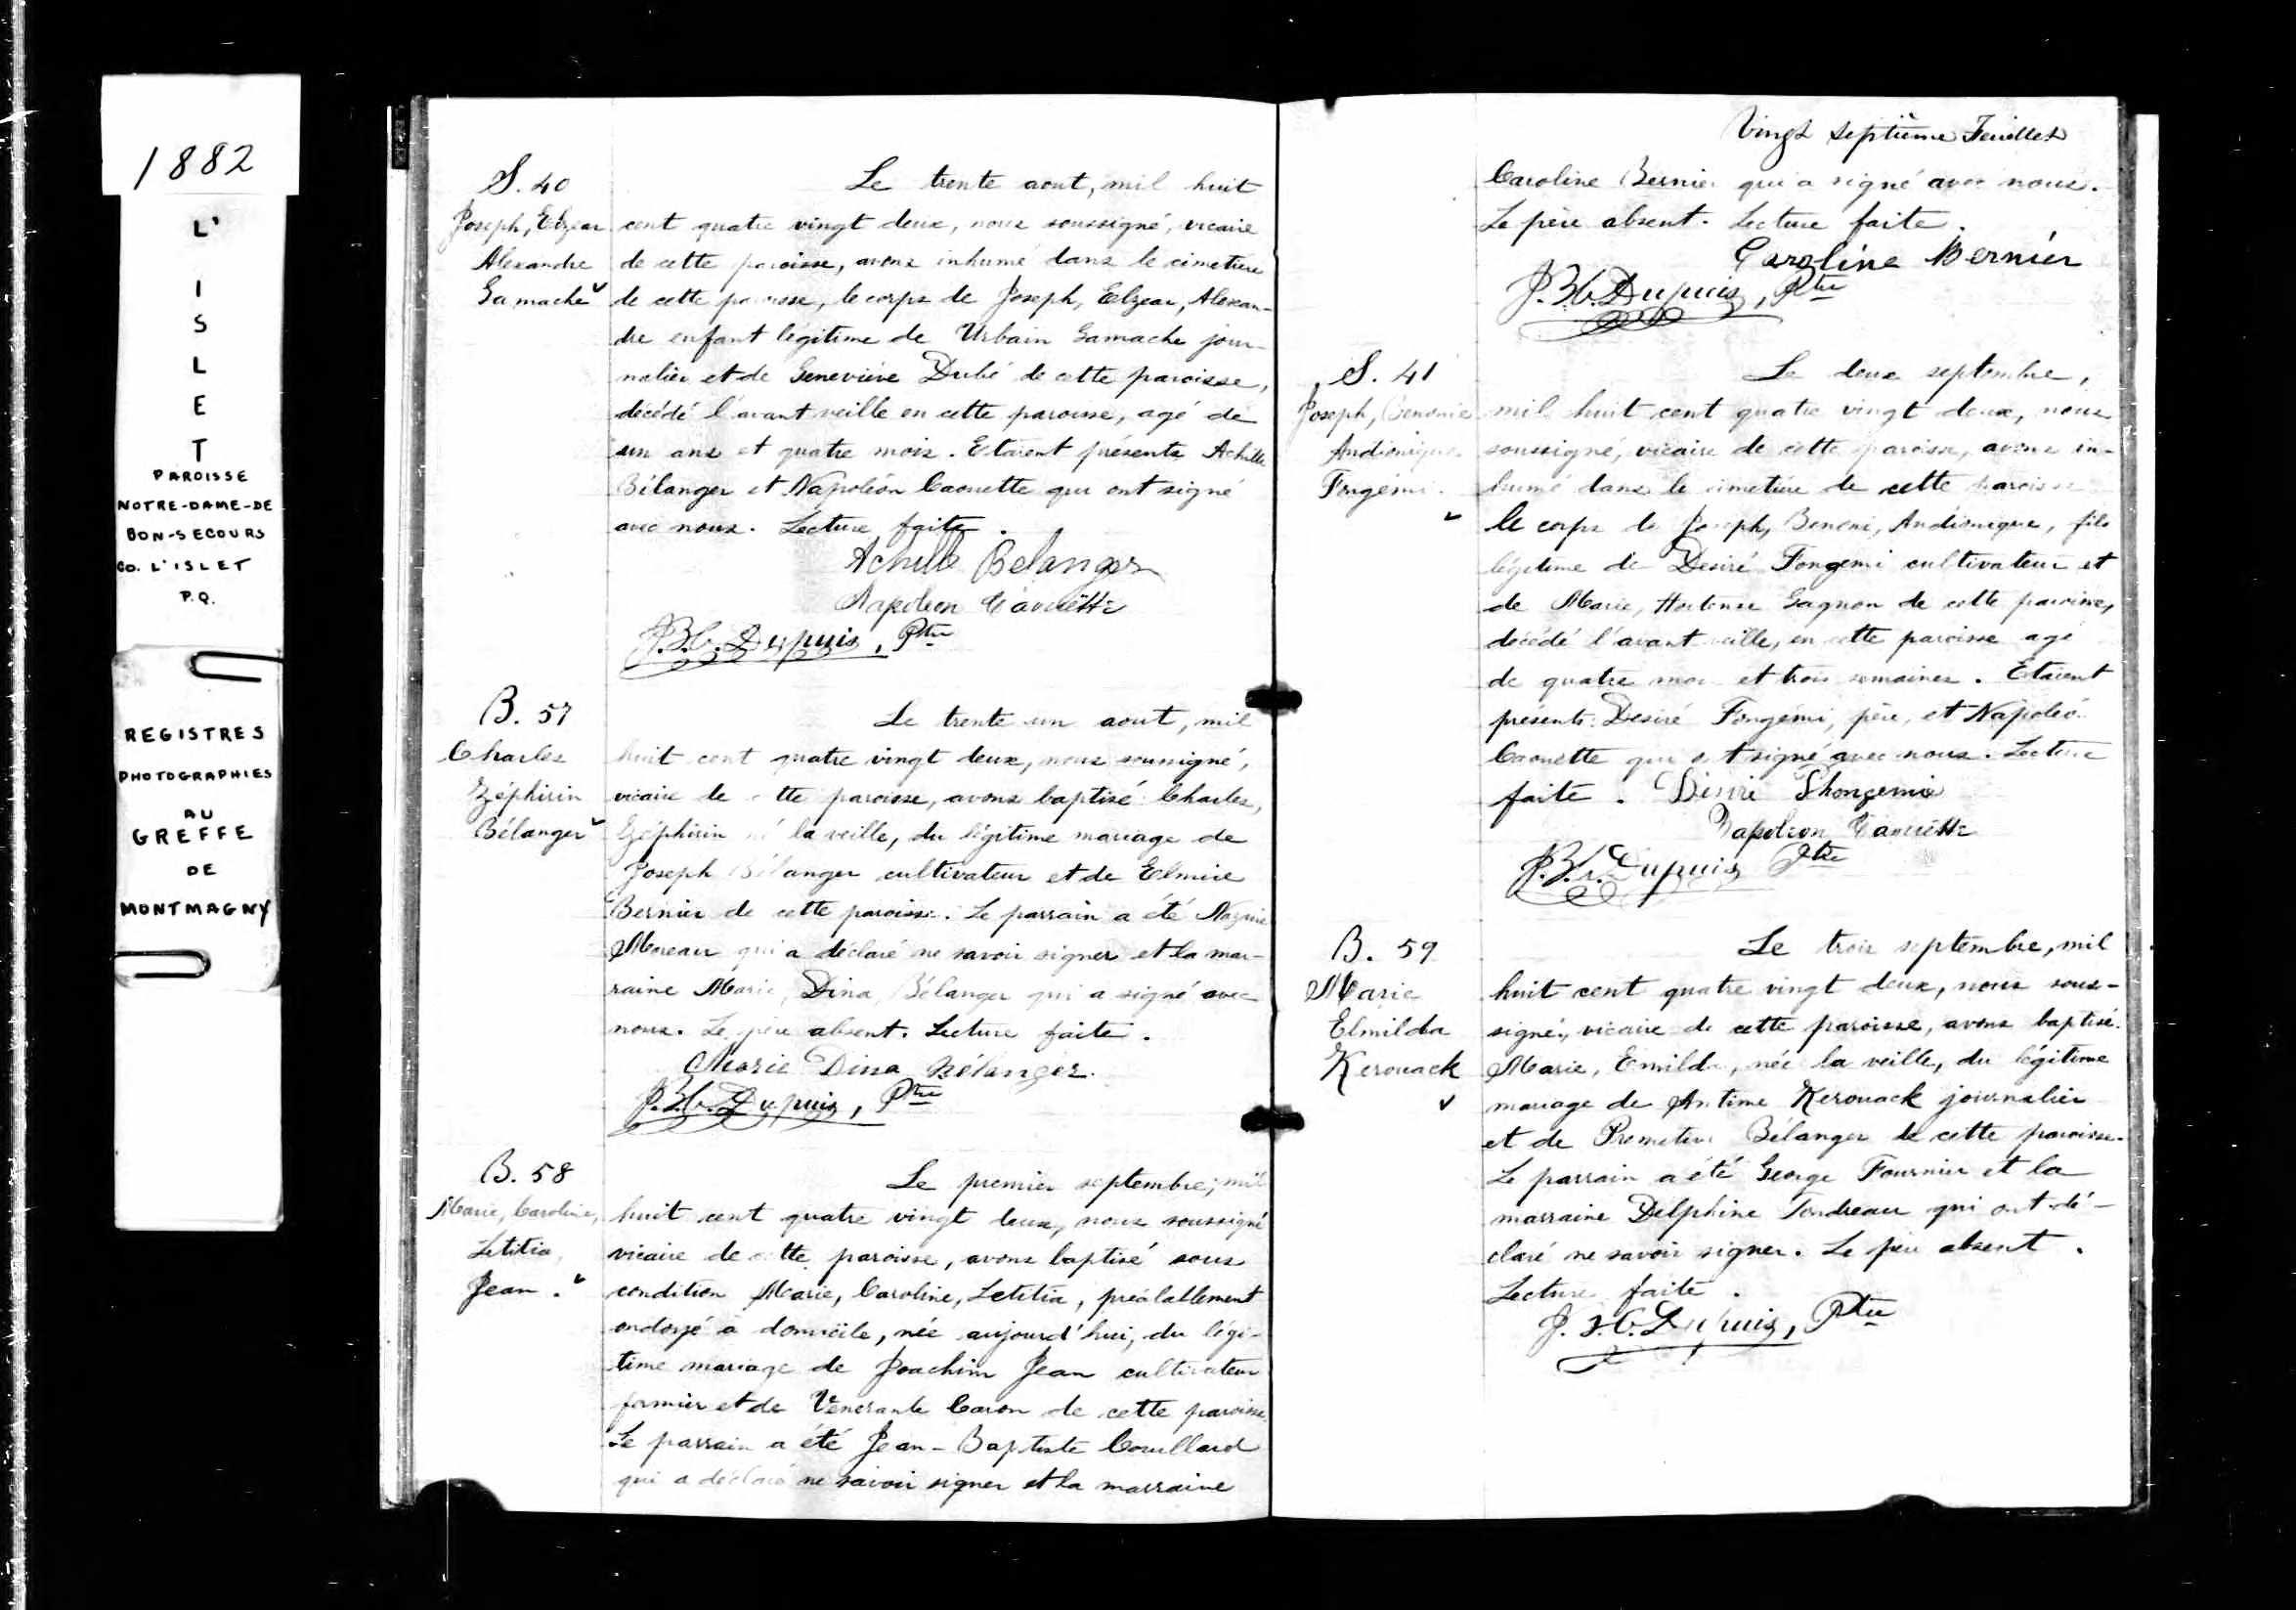 1882
L'
I
S
L
E
T
PAROISSE
NOTRE-DAME-DE
BON-SECOURS
CO. L'ISLET
P.Q.
REGISTRES
PHOTOGRAPHIES
AU
GREFFE
DE
MONTMAGNY
S. 40
Joseph, Elzear
Alexandre
Gamache
Le trente aout, mil huit
cent quatre vingt deux, nous soussigné, vicaire
de cette paroisse, avons inhumé dans le cimetiere
de cette paroisse, le corps de Joseph, Elzear, Alexan-
dre enfant légitime de Urbain Gamache jour-
nalier et de Geneviève Dubé de cette paroisse,
décédé l'avant veille en cette paroisse, agé de
un ans et quatre mois. Etaient présents Achille
Bélanger et Napoléon Caouette qui ont signé
avec nous. Lecture faite.
Achille Belanger
Napoleon Caouette
J.B.C. Dupuis, Ptre
B. 57
Charles
Zéphirin
Bélanger
Le trente un aout, mil
huit cent quatre vingt deux, nous soussigné,
vicaire de cette paroisse, avons baptisé Charles,
Zéphirin né la veille, du légitime mariage de
Joseph Bélanger cultivateur et de Elmire
Bernier de cette paroisse. Le parrain a été Nazaire
Moreau qui a déclaré ne savoir signer et la mar-
raine Marie, Dina Bélanger qui a signé avec
nous. Le père absent. Lecture faite.
Marie Dina Bélanger.
J.B.C. Dupuis, Ptre
B. 58
Marie, Caroline,
Letitia,
Jean.
Le premier septembre, mil
huit cent quatre vingt deux, nous soussigné
vicaire de cette paroisse, avons baptisé sous
condition Marie, Caroline, Letitia, préalablement
ondoyé à domicile, née aujourd'hui, du légi-
time mariage de Joachim Jean cultivateur
fermier et de Vénérante Caron de cette paroisse.
Le parrain a été Jean-Baptiste Couillard
qui a déclaré ne savoir signer et la marraine
Vingt septième Feuillet
Caroline Bernier qui a signé avec nous.
Le père absent. Lecture faite.
Caroline Bernier
J.B.C. Dupuis, Ptre
S. 41
Joseph, Benonie
Andronique
Fongémi.
Le deux septembre,
mil huit cent quatre vingt deux, nous
soussigné, vicaire de cette paroisse, avons in-
humé dans le cimetière de cette paroisse
le corps de Joseph, Benoni, Andronique, fils
légitime de Desiré Fongemi cultivateur et
de Marie, Hortense Gagnon de cette paroisse,
décédé l'avant veille, en cette paroisse agé
de quatre mois et trois semaines. Etaient
présents: Desiré Fongémi, père, et Napoléo
Caouette qui ont signé avec nous. Lecture
faite. Désiré Phongemie
Napoleon Caouette
J.B.C. Dupuis Ptre
B. 59
Marie
Elmilda
Kerouack
Le trois septembre, mil
huit cent quatre vingt deux, nous sous-
signé, vicaire de cette paroisse, avons baptisé
Marie, Emilda, née la veille, du légitime
mariage de Antime Kerouack journalier
et de Bélanger de cette paroisse.
Le parrain a été George Fournier et la
marraine Delphine Tondreau qui ont dé-
claré ne savoir signer. Le père absent.
Lecture faite.
J.B.C. Dupuis, Ptre